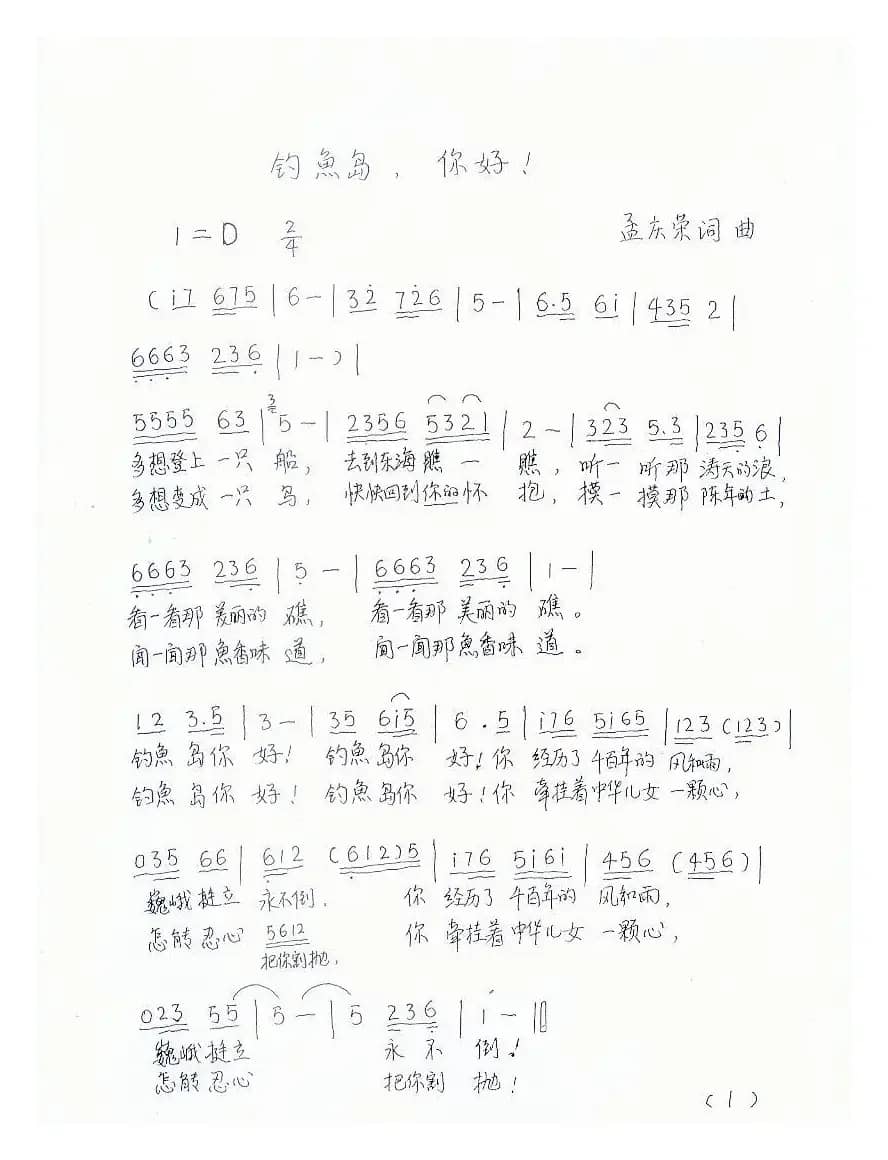 钓魚岛，你好！
1=D 2/4 孟庆荣词曲
(i7 675|6-|32 726|5-|6.5 6i|435 2|
6663 236|1-)|
3
5555 63|5-|2356 5321|2-|323 5.3|235 6|
多想登上一只船，去到东海瞧一瞧，听一听那涛天的浪，
多想变成一只鸟，快快回到你的怀抱，摸一摸那陈年的土，
6663 236|5-|6663 236|1-|
看一看那美丽的礁，看一看那美丽的礁。
闻一闻那魚香味道，闻一闻那魚香味道。
12 3.5|3-|35 6i5|6.5|i76 5i65|123(123)|
钓魚岛你好！钓魚岛你好！你经历了千百年的风和雨，
钓魚岛你好！钓魚岛你好！你牵挂着中华儿女一颗心，
035 66|612 (612)5|i76 5i6i|456(456)|
巍峨挺立永不倒．你经历了千百年的风和雨，
怎能忍心 5612 你牵挂着中华儿女一颗心，
把你割抛，
023 55|5-|5 236|i-‖
巍峨挺立永不倒！
怎能忍心把你割抛！
(1)